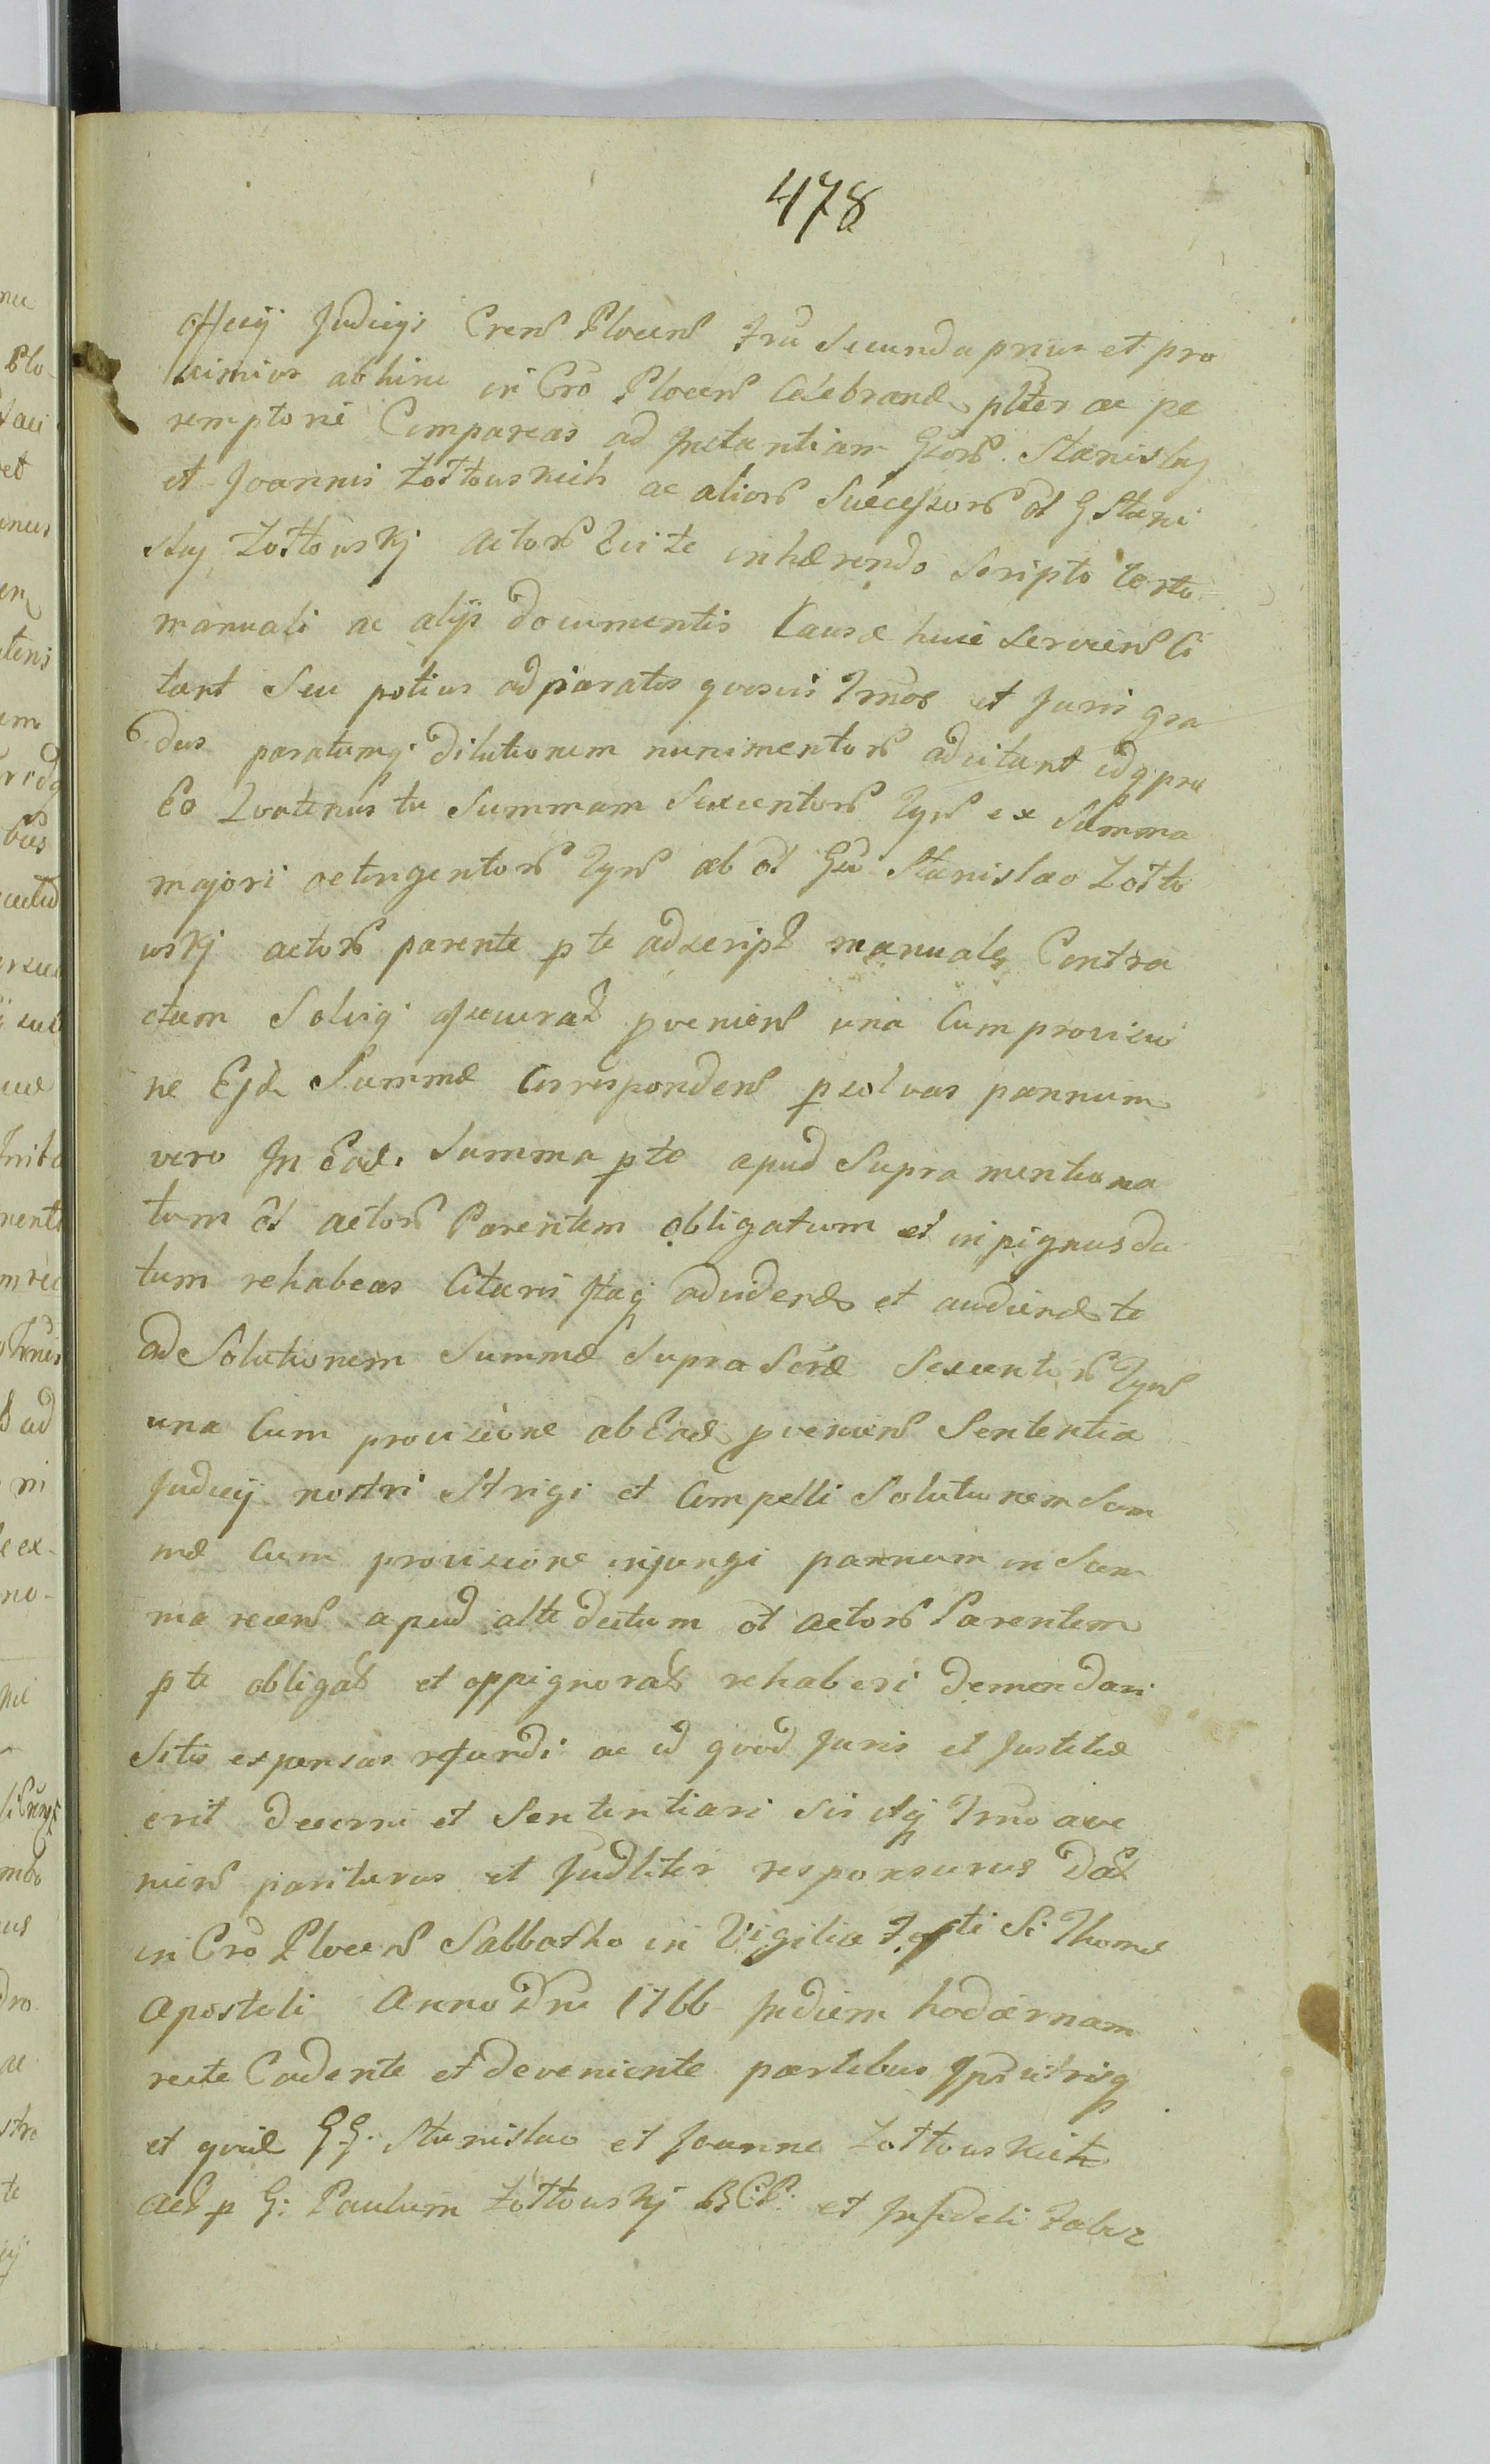 478
officij Judicijs Crens Plocens Fria Secunda prius et pro
ximior abhinc in Cro Plocens Celebrand pliter ac pe
remptorie Compareas ad Instantiam Gsors Stanislaj
et Joannis Zołtowskich ac aliors Successors ol G Stani
slaj Zołtowskj actors Qui te inhærendo Scripto
manuali ac alijs documentis Causæ huic serviens Ci
tant Seu potius ad paratos quosvis Trnos et Juris gra
dus paratumq dilutionem munimentors adcitant idq pro
Eo Quatenus tu Summam Sexcentors Tyns ex Summa
majori octingentors Tyns ab ol Gso Stanislao Zołto
wskj actors parente p te ad script manualeg Contra
ctam Solvig assecurat pveniens una Cum provisio
ne Ejd Summæ Correspondens psolvas pannum
vero In Ead Summa p te apud Supra mentiona
tum ol actors Parentem obligatum et in pignus da
tum rehabeas Citaris Itaq ad vidend et audiend te
ad Solutionem Summæ Supra Scræ Sexcentors Tyns
una Cum provisione ab Ead pveniens Sententia
Judicij nostri Strigi et Compelli Solutionem Sum
mæ Cum provisione injungi pannum in Sum
ma recens apud alte dictum ol actors Parentem
p te obligat et oppignorat rehaberi demandari
Sitis expensas refundi ac id quod Juris et Justitiæ
erit decerni et Sententiari Sis Itaq Trno
niens pariturus et Judliter responsurus Dat
in Cro Plocens Sabbatho in Vigilia Festi Si Thomæ
Apostoli Anno Dni 1766 In diem hodiernam
recte Cadente et deveniente partibus Ipsis utrisq
et quid GG. Stanislao et Joanne Zołtowskich
Act p G: Paulum Zołtowskj B.C.P. et Infideli